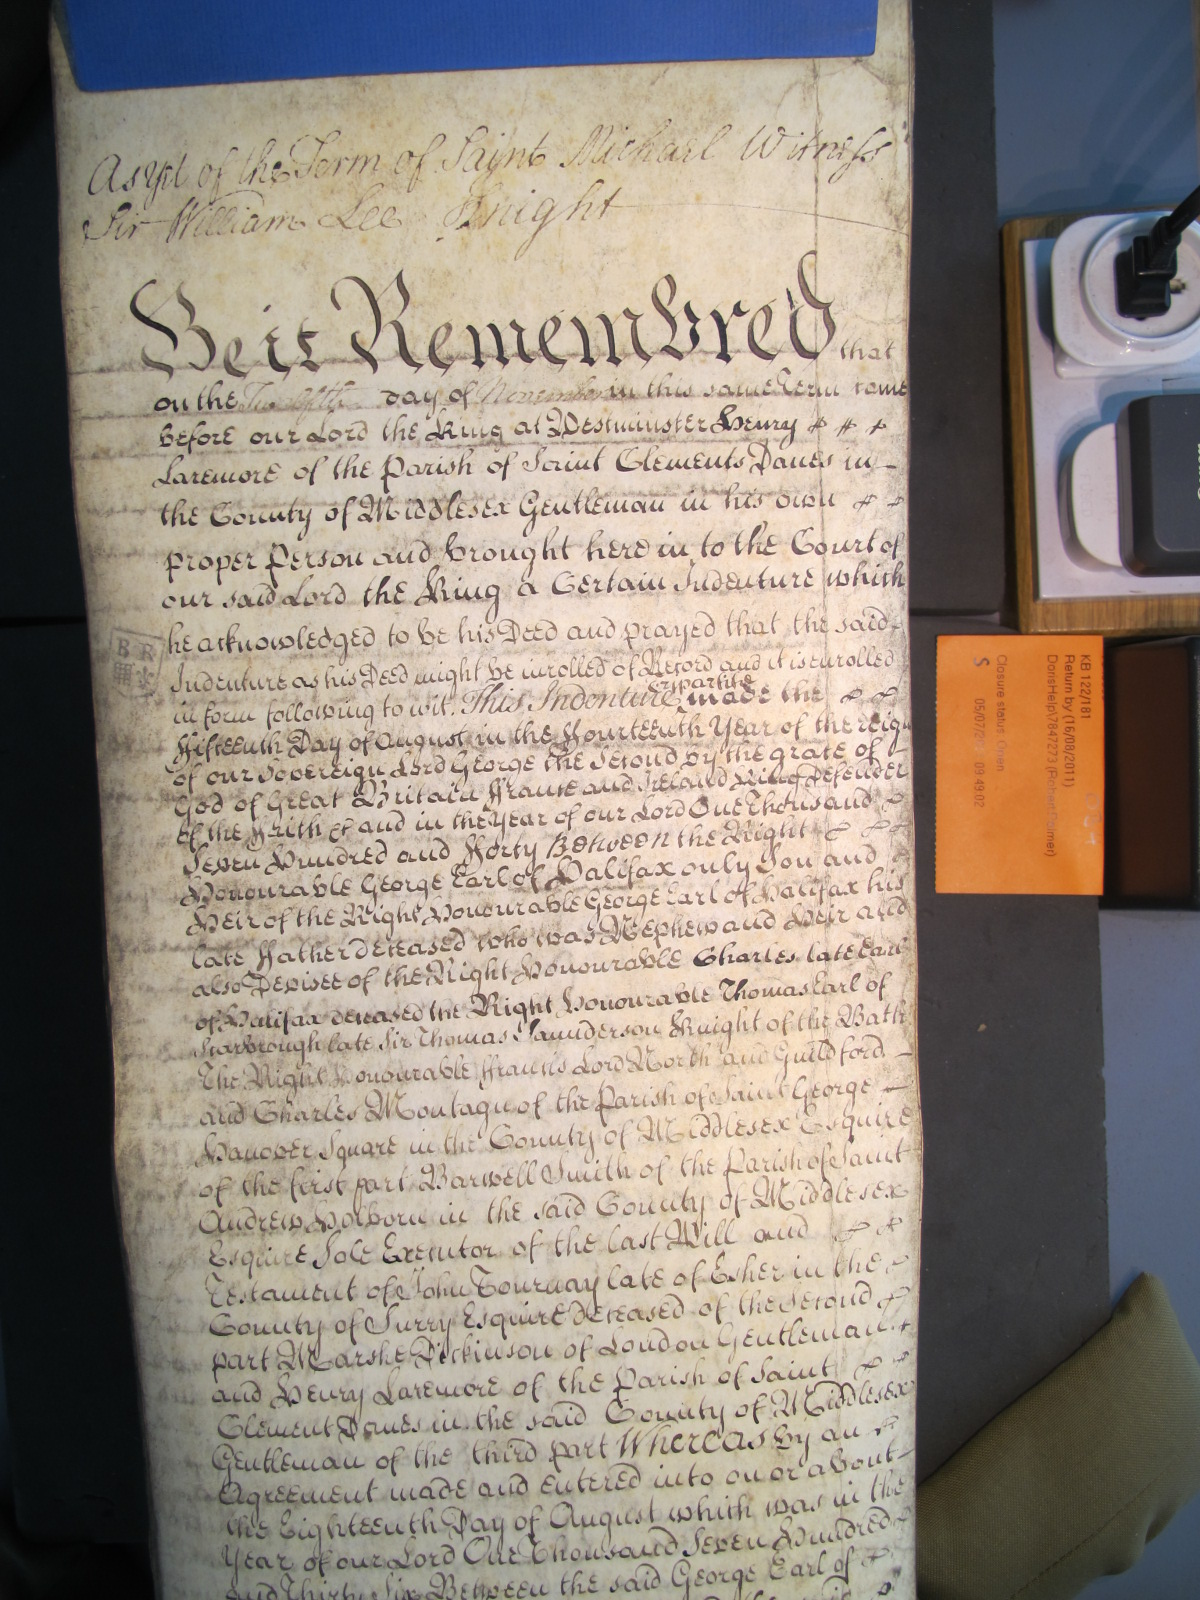 As yet of the Term of Saint Michael Witness
Sir William Lee Knight
Be it Remembred that
on the Twelfth day of November in this same Term came
before our Lord the King at Westminster Henry
Laremore of the Parish of Saint Clements Danes in
the County of Middlesex Gentleman in his own
proper Person and brought here in to the Court of
our said Lord the King a Certain Indenture which
he acknowledged to be his Deed and prayed that the said
Indenture as his Deed might be inrolled of Record and it is enrolled
in form following to wit. This Indenture tripartite made the
Fifteenth Day of August in the Fourteenth Year of the reign
of our Sovereign Lord George the Second by the grace of
God of Great Britain France and Ireland King Defender
of the Faith &c and in the Year of our Lord One Thousand
Seven Hundred and Forty Between the Right
Honourable George Earl of Halifax only Son and
Heir of the Right Honourable George Earl of Halifax his
late Father deceased who was Nephew and Heir and
also Devisee of the Right Honourable Charles late Earl
of Halifax deceased the Right Honourable Thomas Earl of
Scarbrough late Sir Thomas Saunderson Knight of the Bath
The Right Honourable Francis Lord North and Guildford
and Charles Montagu of the Parish of Saint George
Hanover Square in the County of Middlesex Esquire
of the first part Barwell Smith of the Parish of Saint
Andrew Holborn in the said County of Middlesex
Esquire Sole Executor of the last Will and
Testament of John Tournay late of Esher in the
County of Surry Esquire deceased of the Second
part Marshe Dickinson of London Gentleman
and Henry Laremore of the Parish of Saint
Clement Danes in the said County of Middlesex
Gentleman of the third part Whereas by an
Agreement made and entered into on or about
the Eighteenth Day of August which was in the
Year of our Lord One Thousand Seven Hundred
and Thirty Six Between the said George Earl of
B R
KB 122/181
Return by (16/08/2011)
Closure status: Open
S 05/07/20 09:49:02